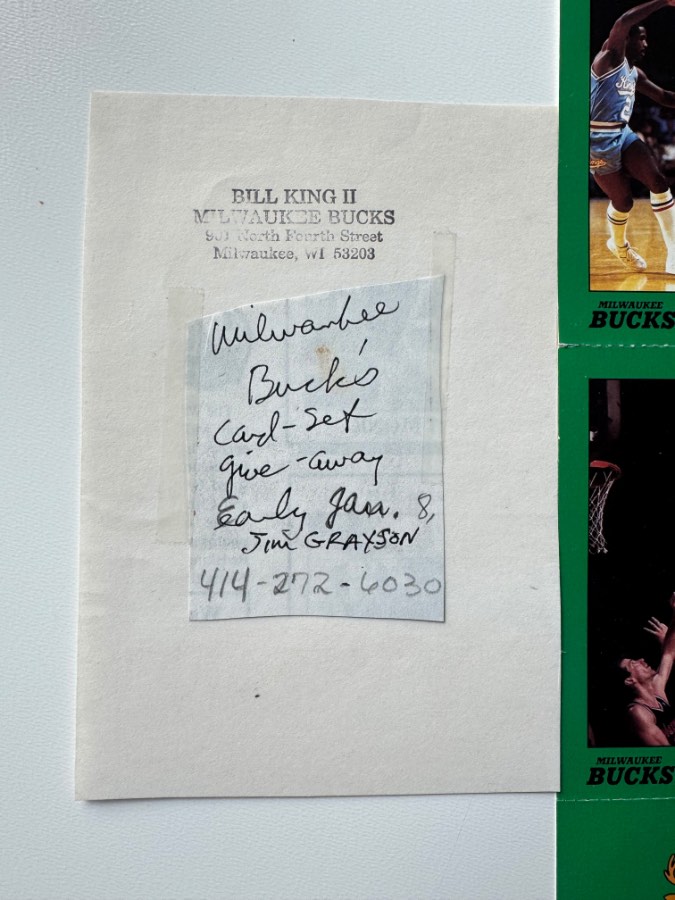 BILL KING II
MILWAUKEE BUCKS
901 North Fourth Street
Milwaukee, WI 53203
Milwaukee
Buck's
Card-Set
give-away
Early Jan. 8,
Jim GRAYSON
414-272-6030
Kings
MILWAUKEE
BUCKS
MILWAUKEE
BUCKS